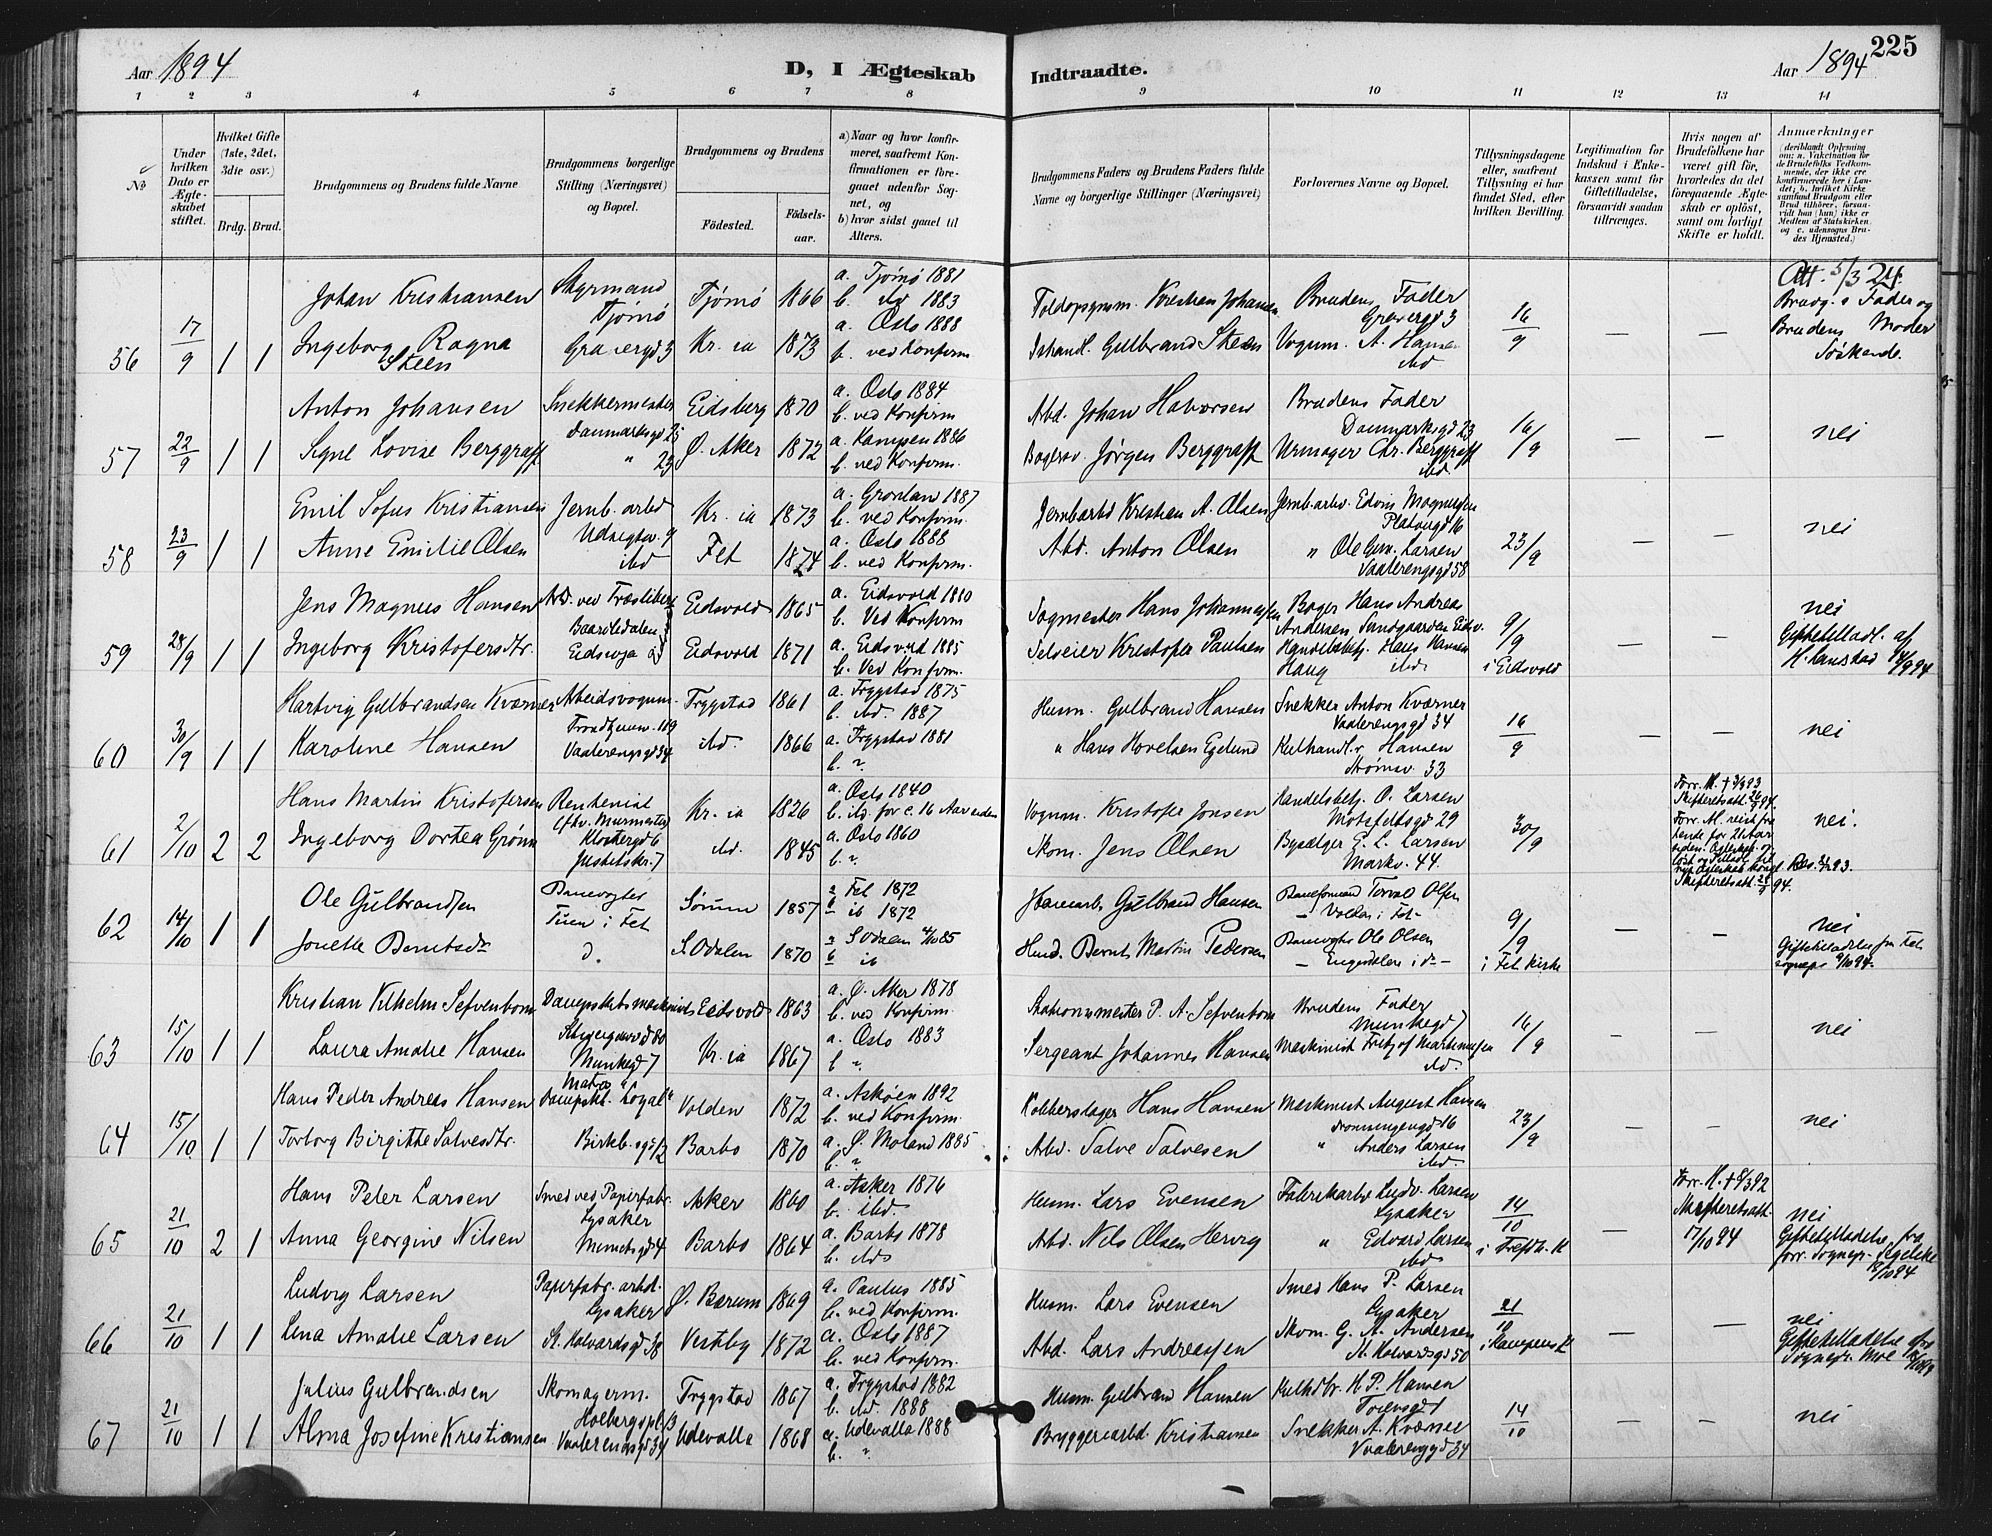 Aar 1894
D, I Ægteskab
Indtraadte.
Aar 1894
225
1 2 3 4 5 6 7 8 9 10 11 12 13 14
No
Under hvilken Dato er Ægteskabet stiftet.
Hvilket Gifte (1ste, 2det, 3die osv.)
Brdg. Brud.
Brudgommens og Brudens fulde Navne
Brudgommens borgerlige Stilling (Næringsvei) og Bopæl.
Brudgommens og Brudens
Fødested.
Fødselsaar.
a) Naar og hvor konfirmeret, saafremt Konfirmationen er foregaaet udenfor Sognet, og
b) hvor sidst gaaet til Alters.
Brudgommens Faders og Brudens Faders fulde Navne og borgerlige Stillinger (Næringsvei)
Forlovernes Navne og Bopæl.
Tillysningsdagene eller, saafremt Tillysning ei har fundet Sted, efter hvilken Bevilling.
Legitimation for Indskud i Enkekassen samt for Giftetilladelse, forsaavidt saadan tiltrænges.
Hvis nogen af Brudefolkene har været gift før, hvorledes da det foregaaende Ægteskab er opløst, samt om lovligt Skifte er holdt.
Anmærkninger (deriblandt Oplysning om: a. Vakcination for de Brudefolks Vedkommende, der ikke ere konfirmerede her i Landet; b. hvilket Kirkesamfund Brudgom eller Brud tilhører, forsaavidt han (hun) ikke er Medlem af Statskirken, og c. udensogns Brudes Hjemsted.)
56
17/9
1 1
Johan Kristiansen
Ingeborg Ragna Steen
Styrmand
Tjömö
Gravergd 3
Tjömö 1866
Kr. ia 1873
a. Tjömö 1881
b. ibd 1883
a. Oslo 1888
b. ved Konfirm
Toldopsynsm. Kristian Johansen
Ishandl. Gulbrand Steen
Brudens Fader
Gravergd 3
Vognm. A. Hansen
ibd
16/9
— —
Att. 5/3 24.
Brudg.s Fader og
Brudens Moder
Söskende.
57
22/9
1 1
Anton Johansen
Signe Lovise Berggraff
Snekkermester
Danmarksgd 25
" 23
Eidsberg 1870
Ø. Aker 1872
a. Oslo 1884
b. ved Konfirm
a. Kampen 1886
b. ved Konfirm.
Arbd. Johan Halvorsen
Bagersv. Jørgen Berggraff
Brudens Fader
Danmarksgd 23
Urmager Chr. Berggraff
ibd
16/9
— —
nei
58
23/9
1 1
Emil Sofus Kristiansen
Anne Emilie Olsen
Jernb. arbd
Udsigtsv. 9
ibd
Kr. ia 1873
Fet 1874
a. Grønland 1887
b. ved Konfirm.
a. Oslo 1888
b. ved Konfirm.
Jernbarbd Kristian A. Olsen
Abd. Anton Olsen
Jernb.arbv. Edvin Magnussen
Platougd 16
" Ole Gun. Larsen
Vaalerengsgd 58
23/9
— —
nei
59
28/9
1 1
Jens Magnus Hansen
Ingeborg Kristofersdtr.
Arbd. ved Træsliberi
Eidsvold 1865
Eidsvold 1871
a. Eidsvold 1880
b. Ved Konfirm
a. Eidsvold 1885
b. Ved Konfirm.
Sagmester Hans Johannessen
Selveier Kristofer Paulsen
Bager Hans Andreas
Andersen, Sundgaarden Eidsv.
Handelsbetj. Hans Hansen
Haug ibd.
9/9
i Eidsvold
—
nei
Giftetilladl. af
60
30/9
1 1
Hartvig Gulbrandsen Kværner
Karoline Hansen
Arbeidsvognm.
Trondhjemv. 119
Vaalerengsgd 34
Trygstad 1861
ibd. 1866
a. Trygstad 1875
b. ibd. 1887
a. Trygstad 1881
b. "
Husm. Gulbrand Hansen
" Hans Hovelsen Egelund
Snekker Anton Kværner
Vaalerengsgd 34
Kulhandl.r Hansen
Strömsv. 33
16/9
— —
nei
61
2/10
2 2
Hans Martin Kristofersen
Ingeborg Dortea Grønn
Rentenist
(fhv. Murmester)
Klostergd 6
Kr. ia 1826
ibd. 1845
a. Oslo 1840
b. ibd. for c. 16 Aar siden
a. Oslo 1860
b. "
Vognm. Kristofer Jonsen
Skom. Jens Olsen
Handelsbetj. O. Larsen
Motzfeldtsgd 29
Bysælger E. L. Larsen
Markv. 44.
30/9
nei.
62
14/10
1 1
Ole Gulbrandsen
Jonette Berntsdr
Banevogter
Tuen i Fet
d.
Sørum 1857
S. Odalen 1870
a Fet 1872
b ib 1872
a S Odalen 4/10 85
b ib
Banearb. Gulbrand Hansen
Husd. Bernt Martin Pedersen
Baneformand Torvald Olsen
— Volden i Fet —
Banevogter Ole Olsen
— Engerdalen i do —
9/9
i Fet kirke
— —
nei
Giftetilladelse fra Fet
63
15/10
1 1
Kristian Vilhelm Sefvenbom
Laura Amalie Hansen
Dampskibsmaskinist
Munkegd 7
Eidsvold 1863
Kr. ia 1867
a. Ø. Aker 1878
b. ved Konfirm.
a. Oslo 1883
b "
Stationsmester P. A. Sefvenbom
Sergeant Johannes Hansen
Brudens Fader
Munkegd 7
Maskinist Fritjof Martinussen
ibd.
16/9
— —
nei
64
15/10
1 1
Hans Peder Andreas Hansen
Torborg Birgitte Salvesdtr.
Matros
Dampsk. "Loyal"
Volden 1872
Barbo 1870
a. Askøen 1892
b. ved Konfirm.
a. Ø. Moland 1885
b. "
Kobberslager Hans Hansen
Arbd. Salve Salvesen
Maskinist August Hansen
Dronningensgd 16
" Anders Larsen
ibd.
23/9
— —
nei
65
21/10
2 1
Hans Peter Larsen
Anna Georgine Nilsen
Smed ved Papirfabr.
Lysaker
Asker 1860
Barbo 1864
a. Asker 1876
b. ibd.
a. Barbo 1878
b. ibd
Husm. Lars Evensen
Arbd. Nils Olsen Hervig
Fabrikarbd Ludv. Larsen
Lysaker
" Edvard Larsen
ibd
14/10
—
Forr. M. †
Skifteretsatt
17/10 94
nei
Giftetilladelse fra
66
21/10
1 1
Ludvig Larsen
Lina Amalie Larsen
Papirfabr. arbd.
Lysaker
St. Halvardsgd 38
Ø. Bærum 1869
Vestby 1872
a. Paulus 1885
b. ved Konfirm.
a. Oslo 1887
b. ved Konfirm.
Husm. Lars Evensen
Abd. Lars Andreassen
Smed Hans P. Larsen
Lysaker
Skom. G. A. Andersen
St. Halvardsgd 50
21/10
i Kampens K
— —
nei
Giftetilladelse
67
21/10
1 1
Julius Gulbrandsen
Alma Josefine Kristiansen
Skomagerm.
Holbergspl. 13
Vaalerengsgd 34
Trygstad 1867
Udevalla 1868
a. Trygstad 1882
b. ibd. 1888
a. Udevalla 1888
b. "
Husm. Gulbrand Hansen
Bryggeriarbd. Kristiansen
Kulhdbr. H. P. Hansen
Snekker A. Kværner
Vaalerenggd 34
14/10
— —
nei